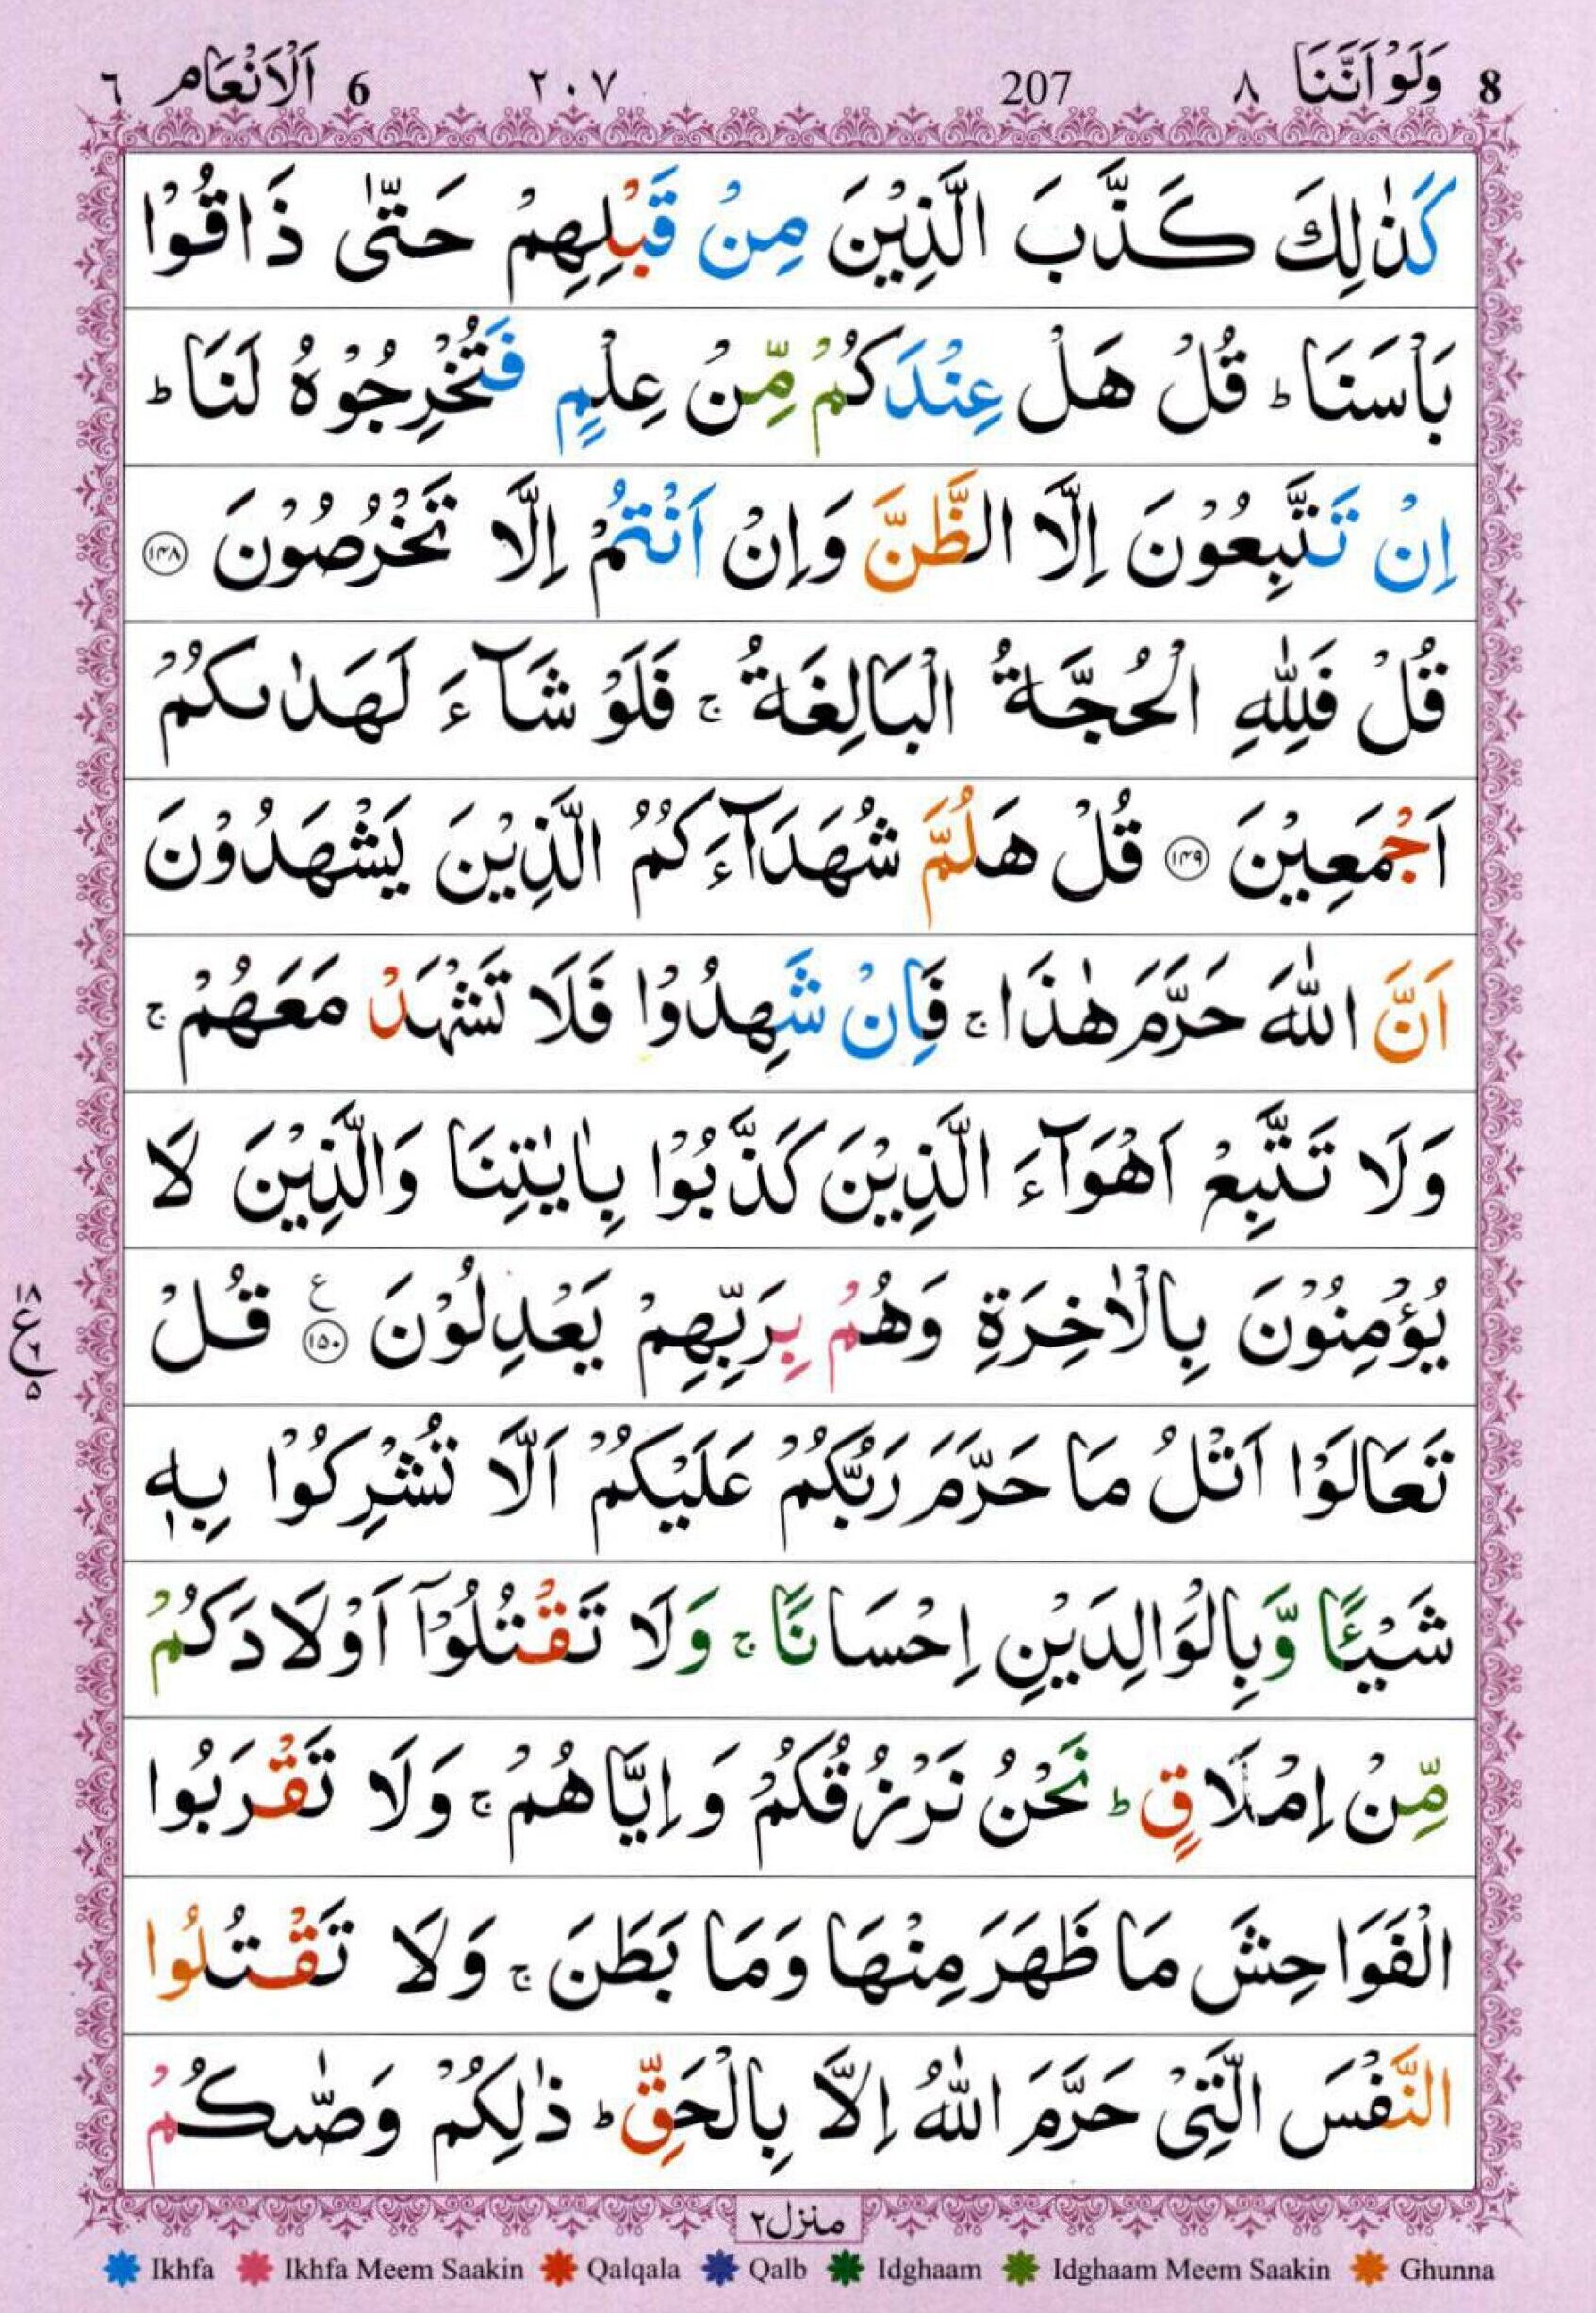 8 وَلَوْ اَنَّنَا ٨ 207 ٢٠٧ 6 اَلْاَنْعَام ٦
كَذٰلِكَ كَذَّبَ الَّذِيْنَ مِنْ قَبْلِهِمْ حَتّٰى ذَاقُوْا
بَاْسَنَا ؕ قُلْ هَلْ عِنْدَكُمْ مِّنْ عِلْمٍ فَتُخْرِجُوْهُ لَنَا ؕ
اِنْ تَتَّبِعُوْنَ اِلَّا الظَّنَّ وَاِنْ اَنْتُمْ اِلَّا تَخْرُصُوْنَ ۝١٤٨
قُلْ فَلِلّٰهِ الْحُجَّةُ الْبَالِغَةُ ۚ فَلَوْ شَآءَ لَهَدٰىكُمْ
اَجْمَعِيْنَ ۝١٤٩ قُلْ هَلُمَّ شُهَدَآءَكُمُ الَّذِيْنَ يَشْهَدُوْنَ
اَنَّ اللّٰهَ حَرَّمَ هٰذَا ۚ فَاِنْ شَهِدُوْا فَلَا تَشْهَدْ مَعَهُمْ ۚ
وَلَا تَتَّبِعْ اَهْوَآءَ الَّذِيْنَ كَذَّبُوْا بِاٰيٰتِنَا وَالَّذِيْنَ لَا
يُؤْمِنُوْنَ بِالْاٰخِرَةِ وَهُمْ بِرَبِّهِمْ يَعْدِلُوْنَ ۝١٥٠ ع قُلْ
١٨ ع ٦ ٥
تَعَالَوْا اَتْلُ مَا حَرَّمَ رَبُّكُمْ عَلَيْكُمْ اَلَّا تُشْرِكُوْا بِهٖ
شَيْـًٔا وَّبِالْوَالِدَيْنِ اِحْسَانًا ۚ وَلَا تَقْتُلُوْٓا اَوْلَادَكُمْ
مِّنْ اِمْلَاقٍ ؕ نَحْنُ نَرْزُقُكُمْ وَاِيَّاهُمْ ۚ وَلَا تَقْرَبُوا
الْفَوَاحِشَ مَا ظَهَرَ مِنْهَا وَمَا بَطَنَ ۚ وَلَا تَقْتُلُوا
النَّفْسَ الَّتِيْ حَرَّمَ اللّٰهُ اِلَّا بِالْحَقِّ ؕ ذٰلِكُمْ وَصّٰىكُمْ
منزل٢
Ikhfa Ikhfa Meem Saakin Qalqala Qalb Idghaam Idghaam Meem Saakin Ghunna